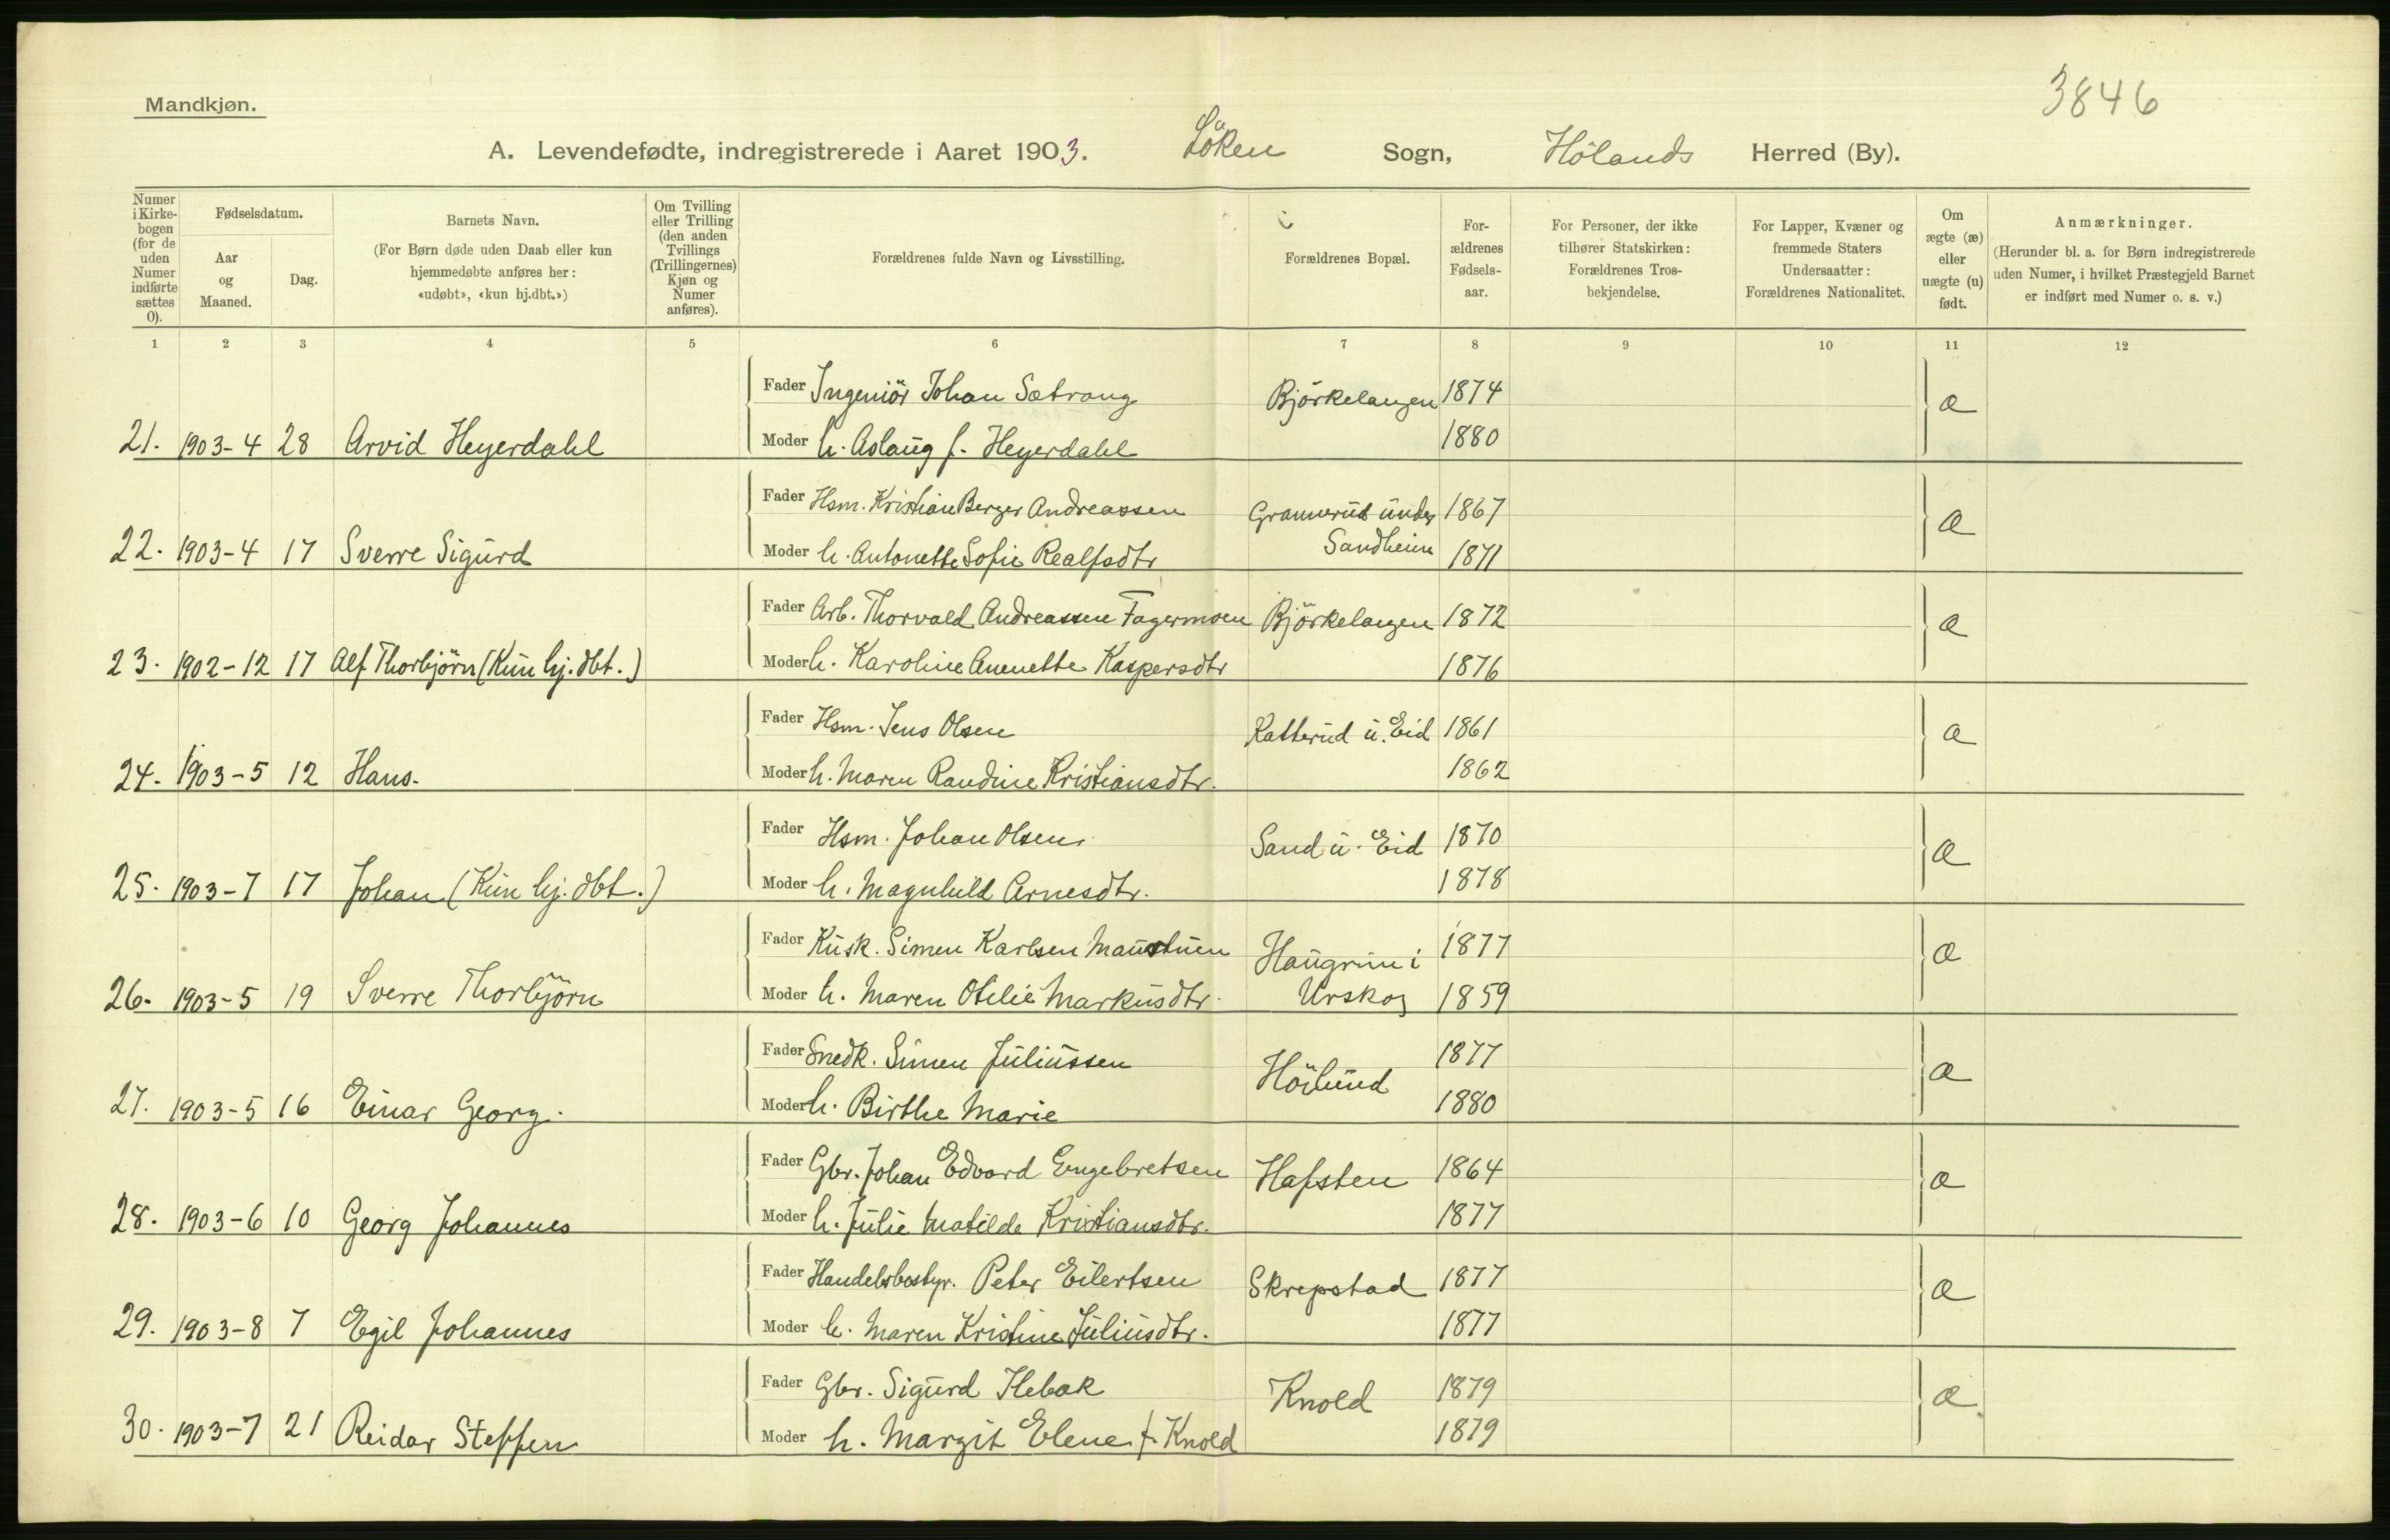 3846
Mandkjøn.
A. Levendefødte, indregistrerede i Aaret 1903. Löken Sogn, Hölands Herred (By).
Numer i Kirkebogen (for de uden Numer indførte sættes 0).
Fødselsdatum.
Aar og Maaned.
Dag.
Barnets Navn.
(For Børn døde uden Daab eller kun hjemmedøbte anføres her: «udøbt», «kun hj.dbt.»)
Om Tvilling eller Trilling (den anden Tvillings (Trillingernes) Kjøn og Numer anføres).
Forældrenes fulde Navn og Livsstilling.
Forældrenes Bopæl.
For-ældrenes Fødsels-aar.
For Personer, der ikke tilhører Statskirken: Forældrenes Tros-bekjendelse.
For Lapper, Kvæner og fremmede Staters Undersaatter: Forældrenes Nationalitet.
Om ægte (æ) eller uægte (u) født.
Anmærkninger.
(Herunder bl. a. for Børn indregistrerede uden Numer, i hvilket Præstegjeld Barnet er indført med Numer o. s. v.)
1 2 3 4 5 6 7 8 9 10 11 12
Fader Ingeniör Johan Sætrang Björkelangen 1874 æ
21. 1903-4 28 Arvid Heyerdahl Moder h. Aslaug f. Heyerdahl 1880
Fader Hsm. Kristian Berger Andreassen Grannerud under 1867 æ
Sandheim
22. 1903-4 17 Sverre Sigurd Moder h. Antonette Sofie Realfsdtr 1871
Fader Arb. Thorvald Andreassen Fagermoen Björkelangen 1872 æ
23. 1902-12 17 Alf Thorbjörn (Kun hj. dbt.) Moder h. Karoline Annette Kaspersdtr 1876
Fader Hsm. Jens Olsen Katterud u. Eid 1861 æ
24. 1903-5 12 Hans. Moder h. Maren Randine Kristiansdtr. 1862
Fader Hsm. Johan Olsen Sand u. Eid 1870 æ
25. 1903-7 17 Johan (Kun hj. dbt.) Moder h. Magnhild Arnesdtr. 1878
Fader Kusk. Simen Karlsen Maustuen Haugrim i 1877 æ
26. 1903-5 19 Sverre Thorbjörn Moder h. Maren Otelie Markusdtr. Urskog 1859
Fader Snedk. Simen Juliussen Höilund 1877 æ
27. 1903-5 16 Einar Georg. Moder h. Birthe Marie 1880
Fader Gbr. Johan Edvard Engebretsen Hafsten 1864 æ
28. 1903-6 10 Georg Johannes Moder h. Julie Matilde Kristiansdtr. 1877
Fader Handelsbestyr. Peter Eilertsen Skrepstad 1877 æ
29. 1903-8 7 Egil Johannes Moder h. Maren Kristine Juliusdtr. 1877
Fader Gbr. Sigurd Ilebæk Knold 1879 æ
30. 1903-7 21 Reidar Steffen Moder h. Margit Elene f. Knold 1879